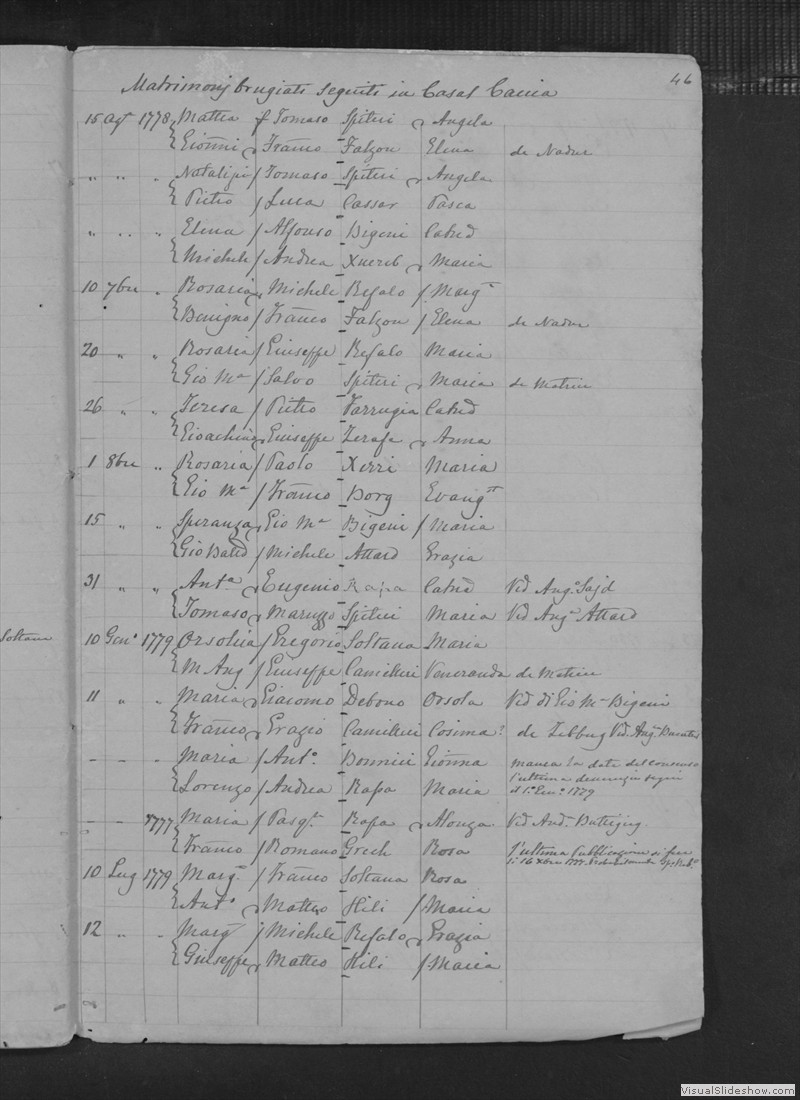 46
Matrimonj brugiati seguiti in Casal Caccia
15 Agt 1778 Mattia f Tomaso Spiteri & Angela
Gionni & Franco Falzon Elena de Nadur
" " " Natalizi / Tomaso Spiteri & Angela
Pietro / Luca Cassar Pasca
" " " Elena / Alfonso Bigeni Catnd
Michele / Andrea Xuereb & Maria
10 7bre " Rosaria & Michele Refalo / Margta
Benigno / Franco Falzon / Elena de Nadur
20 " " Rosaria / Giuseppe Refalo Maria
Gio Ma / Salvo Spiteri & Maria de Matrice
26 " " Teresa / Pietro Farrugia Catnd
Gioachino & Giuseppe Zerafa & Anna
1 8bre " Rosaria / Paolo Xerri Maria
Gio Ma / Franco Borg Evangta
15 " " Speranza & Gio Ma Bigeni / Maria
Gio Batta / Michele Attard Grazia
31 " " Anta & Eugenio Rapa Catnd Vid Ango Sajd
Tomaso & Maruzzo Spiteri Maria Vid Ango Attard
Soltana
10 Geno 1779 Orsolia / Gregorio Soltana Maria
M Ang / Giuseppe Camilleri Veneranda de Matrice
11 " " Maria & Giacomo Debono Orsola Vid di Gio Ma Bigeni
Franco & Grazio Camilleri Cosima? de Zebbug Vid. Ango
- - - Maria / Anto Bonnici Gionna manca la data del consenso
Lorenzo / Andrea Rapa Maria l'ultima
il 1o Geno 1779
- - 1777 Maria / Pasqe Rapa & Alonza Vid And. Buttigieg
Franco / Romano Grech Rosa l'ultima Pubblicazione si fece
li 16 Xbre 1777
10 Lug 1779 Margta / Franco Soltana Rosa
Anto & Matteo Hili / Maria
12 " " Margta / Michele Refalo & Grazia
Giuseppe & Matteo Hili / Maria
VisualSlideshow.com